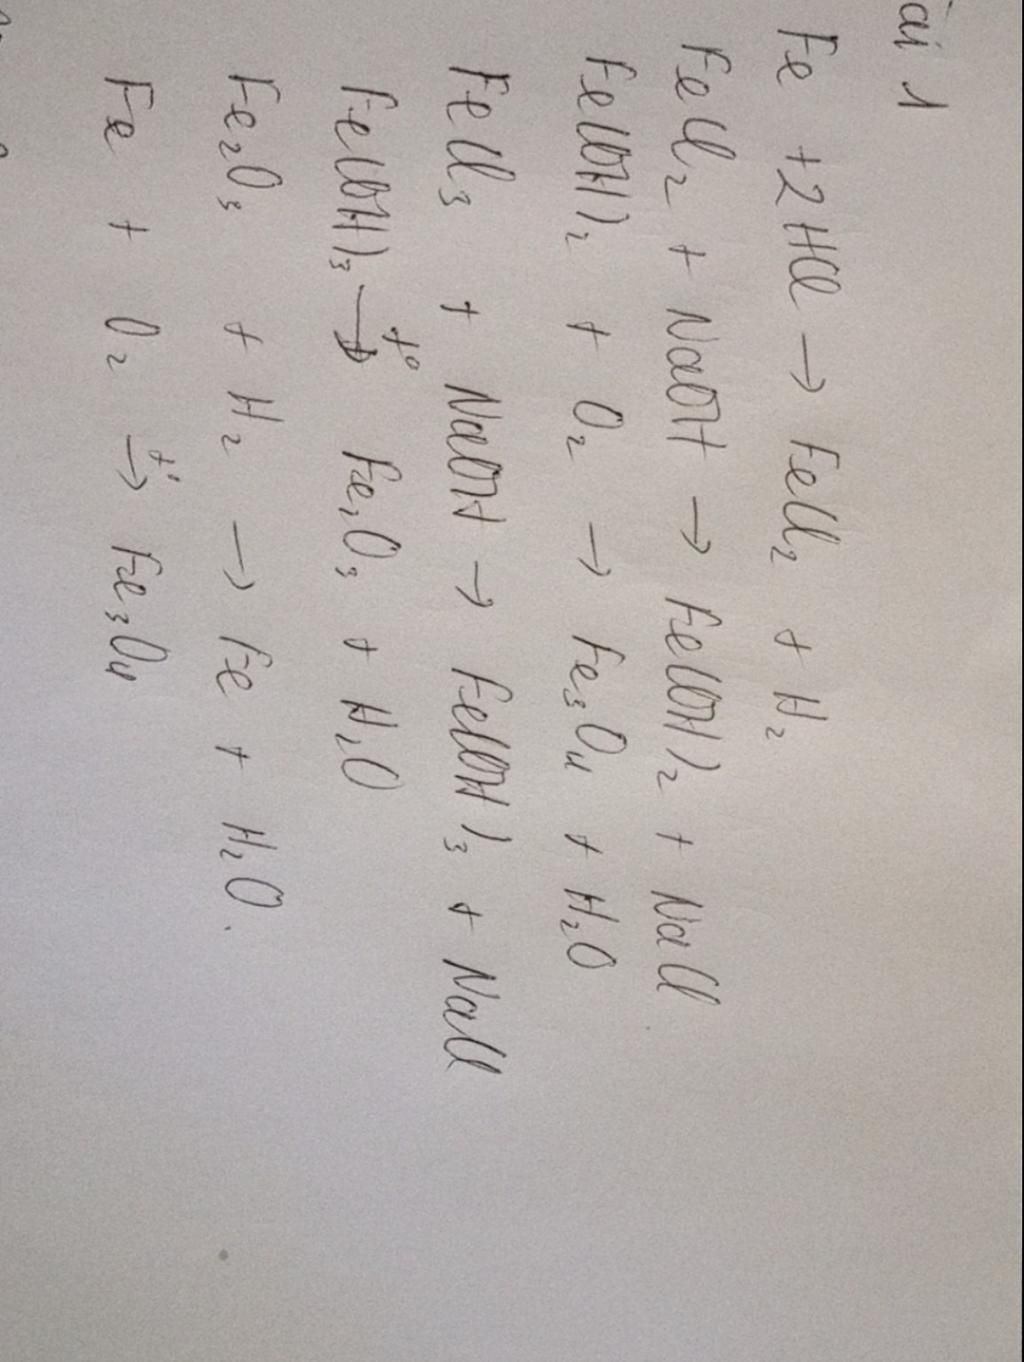 ài 1
Fe + 2HCl → FeCl₂ + H₂
FeCl₂ + NaOH → Fe(OH)₂ + NaCl
Fe(OH)₂ + O₂ → Fe₃O₄ + H₂O
FeCl₃ + NaOH → Fe(OH)₃ + NaCl
Fe(OH)₃ →t° Fe₂O₃ + H₂O
Fe₂O₃ + H₂ → Fe + H₂O.
Fe + O₂ →t° Fe₃O₄